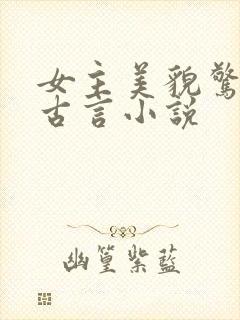 女主美貌驚
古言小説
幽篁紫藍